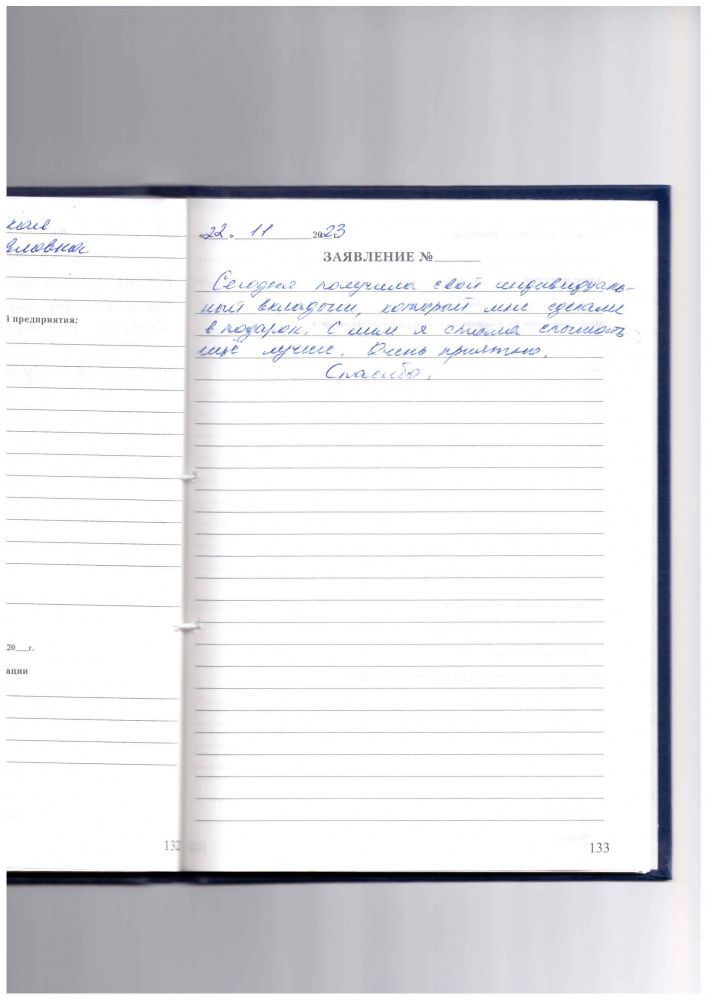 кая
вловна
й предприятия:
20___г.
ации
132
«22» 11 2023
ЗАЯВЛЕНИЕ №
Сегодня получила свой индивидуаль-
ный вкладыш, который мне сделали
в подарок. С ним я стала слышать
ещё лучше. Очень приятно.
Спасибо.
133